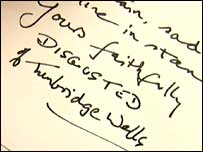 sad
in stan
Yours faithfully
DISGUSTED
of Tunbridge Wells